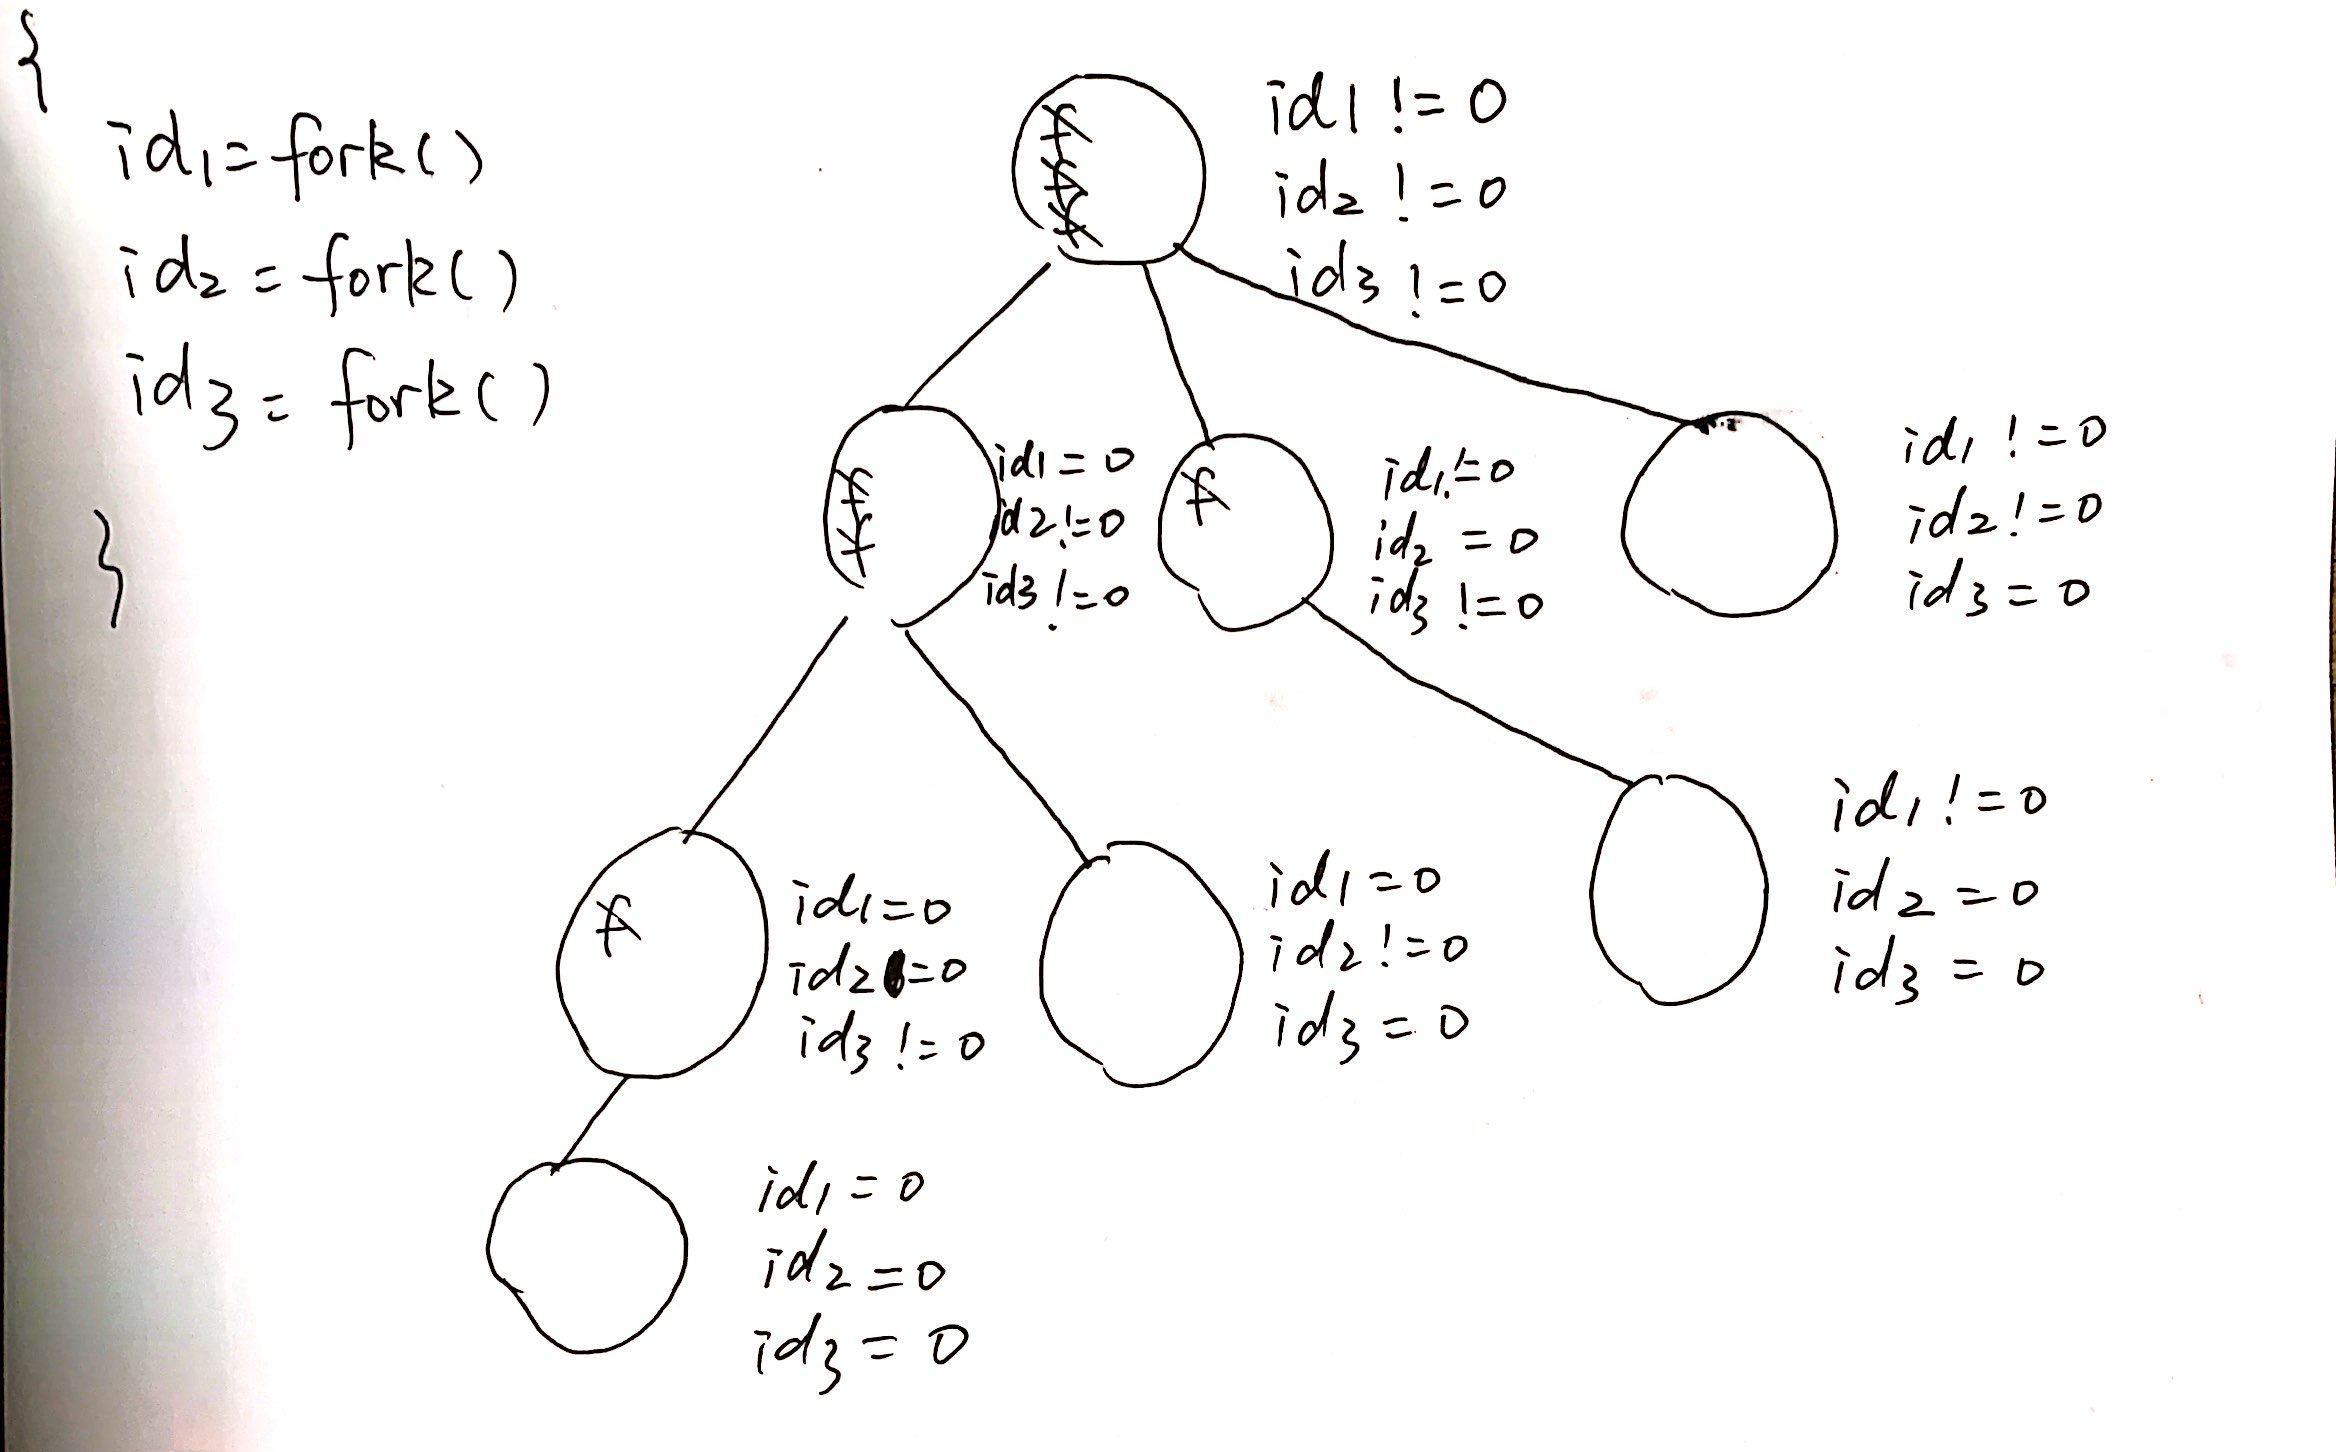 {
id1=fork()
id2=fork()
id3=fork()
}
f
f
f
id1 != 0
id2 != 0
id3 != 0
f
f
id1 = 0
id2 != 0
id3 != 0
f
id1 != 0
id2 = 0
id3 != 0
id1 != 0
id2 != 0
id3 = 0
f
id1=0
id2=0
id3 != 0
id1=0
id2 != 0
id3 = 0
id1 != 0
id2 = 0
id3 = 0
id1 = 0
id2 = 0
id3 = 0